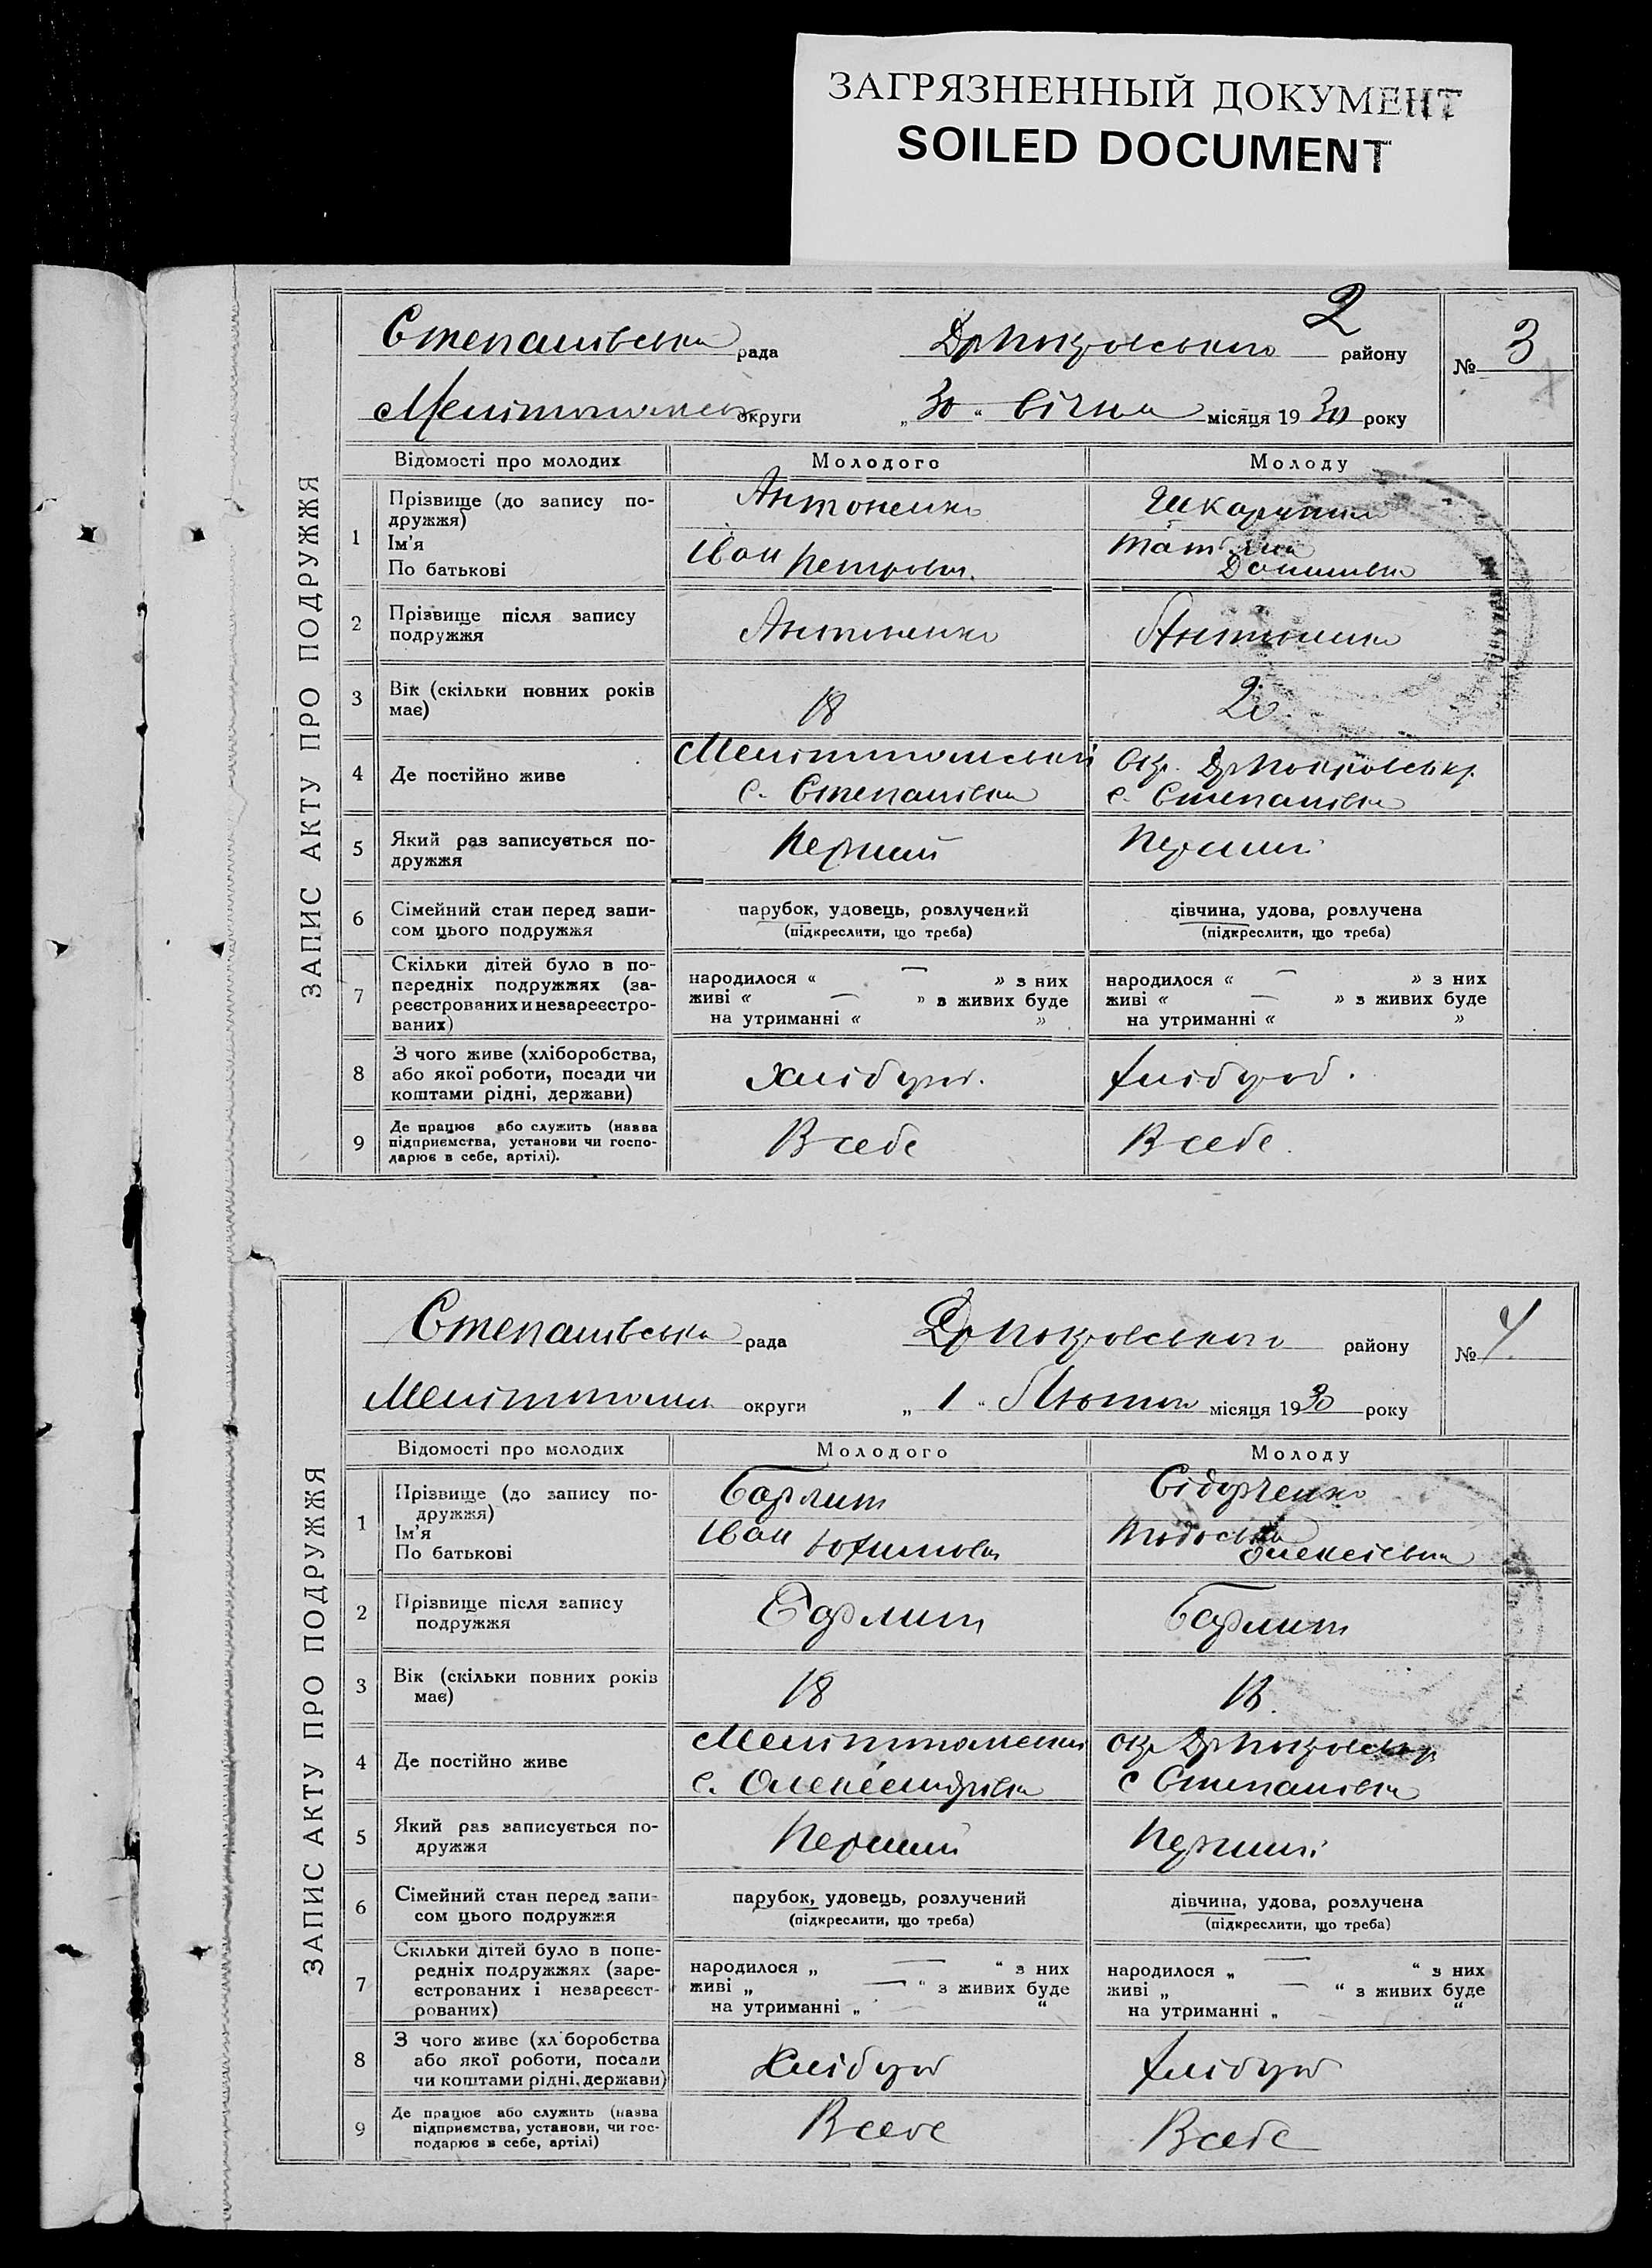 ЗАГРЯЗНЕННЫЙ ДОКУМЕНТ
SOILED DOCUMENT
2
ЗАПИС АКТУ ПРО ПОДРУЖЖЯ
Степанівська рада Др Покровського району № 3
округи „30“ Січня місяця 1930 року
Відомості про молодих Молодого Молоду
1 Прізвище (до запису по-
дружжя)
Антоненко
Ім'я
По батькові
Іван Петрович.
Данилівна
2 Прізвище після запису
подружжя
Антоненко Антоненко
3 Вік (скільки повних років
має)
18 20
4 Де постійно живе
Мелітопольський Окр. Др Покровськ р.
с. Степанівка с. Степанівка
5 Який раз записується по-
дружжя
Перший Перший
6 Сімейний стан перед запи-
сом цього подружжя
парубок, удовець, розлучений дівчина, удова, розлучена
(підкреслити, що треба) (підкреслити, що треба)
7 Скільки дітей було в по-
передніх подружжях (за-
реєстрованих и незареєстро-
ваних)
народилося « — » з них народилося « — » з них
живі « — » з живих буде живі « — » з живих буде
на утриманні « » на утриманні « »
8 З чого живе (хліборобства,
або якої роботи, посади чи
коштами рідні, держави)
Хлібороб. Хлібороб.
9 Де працює або служить (назва
підприємства, установи чи госпо-
дарює в себе, артілі).
В себе В себе.
ЗАПИС АКТУ ПРО ПОДРУЖЖЯ
Степанівська рада Др Покровського району № 4
округи „1“ Лютого місяця 1930 року
Відомості про молодих Молодого Молоду
1 Прізвище (до запису по-
дружжя)
Сідорченко
Ім'я
По батькові
Іван Юхимович Тодоська Олексіївна
2 Прізвище після запису
подружжя
3 Вік (скільки повних років
має)
18
4 Де постійно живе
Мелітопольський окр Др Покровськ р.
с. Степанівка
5 Який раз записується по-
дружжя
Перший Перший
6 Сімейний стан перед запи-
сом цього подружжя
парубок, удовець, розлучений дівчина, удова, розлучена
(підкреслити, що треба) (підкреслити, що треба)
7 Скільки дітей було в попе-
редніх подружжях (заре-
єстрованих і незареєст-
рованих)
народилося „ — “ з них народилося „ — “ з них
живі „ — “ з живих буде живі „ — “ з живих буде
на утриманні „ — “ на утриманні „ — “
8 З чого живе (хл боробства
або якої роботи, посади
чи коштами рідні, держави)
Хлібороб Хлібороб
9 Де працює або служить (назва
підприємства, установи, чи гос-
подарює в себе, артілі)
В себе В себе